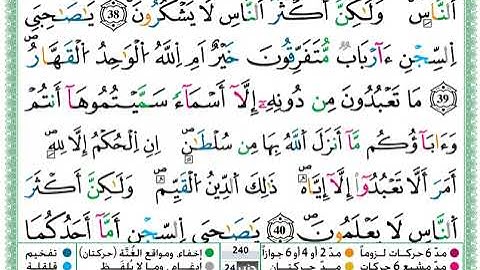 ٱلنَّاسِ وَلَـٰكِنَّ أَكْثَرَ ٱلنَّاسِ لَا يَشْكُرُونَ 38 يَـٰصَـٰحِبَىِ
ٱلسِّجْنِ ءَأَرْبَابٌ مُّتَفَرِّقُونَ خَيْرٌ أَمِ ٱللَّهُ ٱلْوَٰحِدُ ٱلْقَهَّارُ
39 مَا تَعْبُدُونَ مِن دُونِهِۦٓ إِلَّآ أَسْمَآءً سَمَّيْتُمُوهَآ أَنتُمْ
وَءَابَآؤُكُم مَّآ أَنزَلَ ٱللَّهُ بِهَا مِن سُلْطَـٰنٍ إِنِ ٱلْحُكْمُ إِلَّا لِلَّهِ
أَمَرَ أَلَّا تَعْبُدُوٓا۟ إِلَّآ إِيَّاهُ ذَٰلِكَ ٱلدِّينُ ٱلْقَيِّمُ وَلَـٰكِنَّ أَكْثَرَ
ٱلنَّاسِ لَا يَعْلَمُونَ 40 يَـٰصَـٰحِبَىِ ٱلسِّجْنِ أَمَّآ أَحَدُكُمَا
مدّ 6 حركات لزوماً مدّ 2 أو 4 أو 6 جوازاً 240 إخفاء، ومواقع الغُنَّة (حركتان) تفخيم
مدّ حركتان إدغام، وما لا يُلفَظ قلقلة